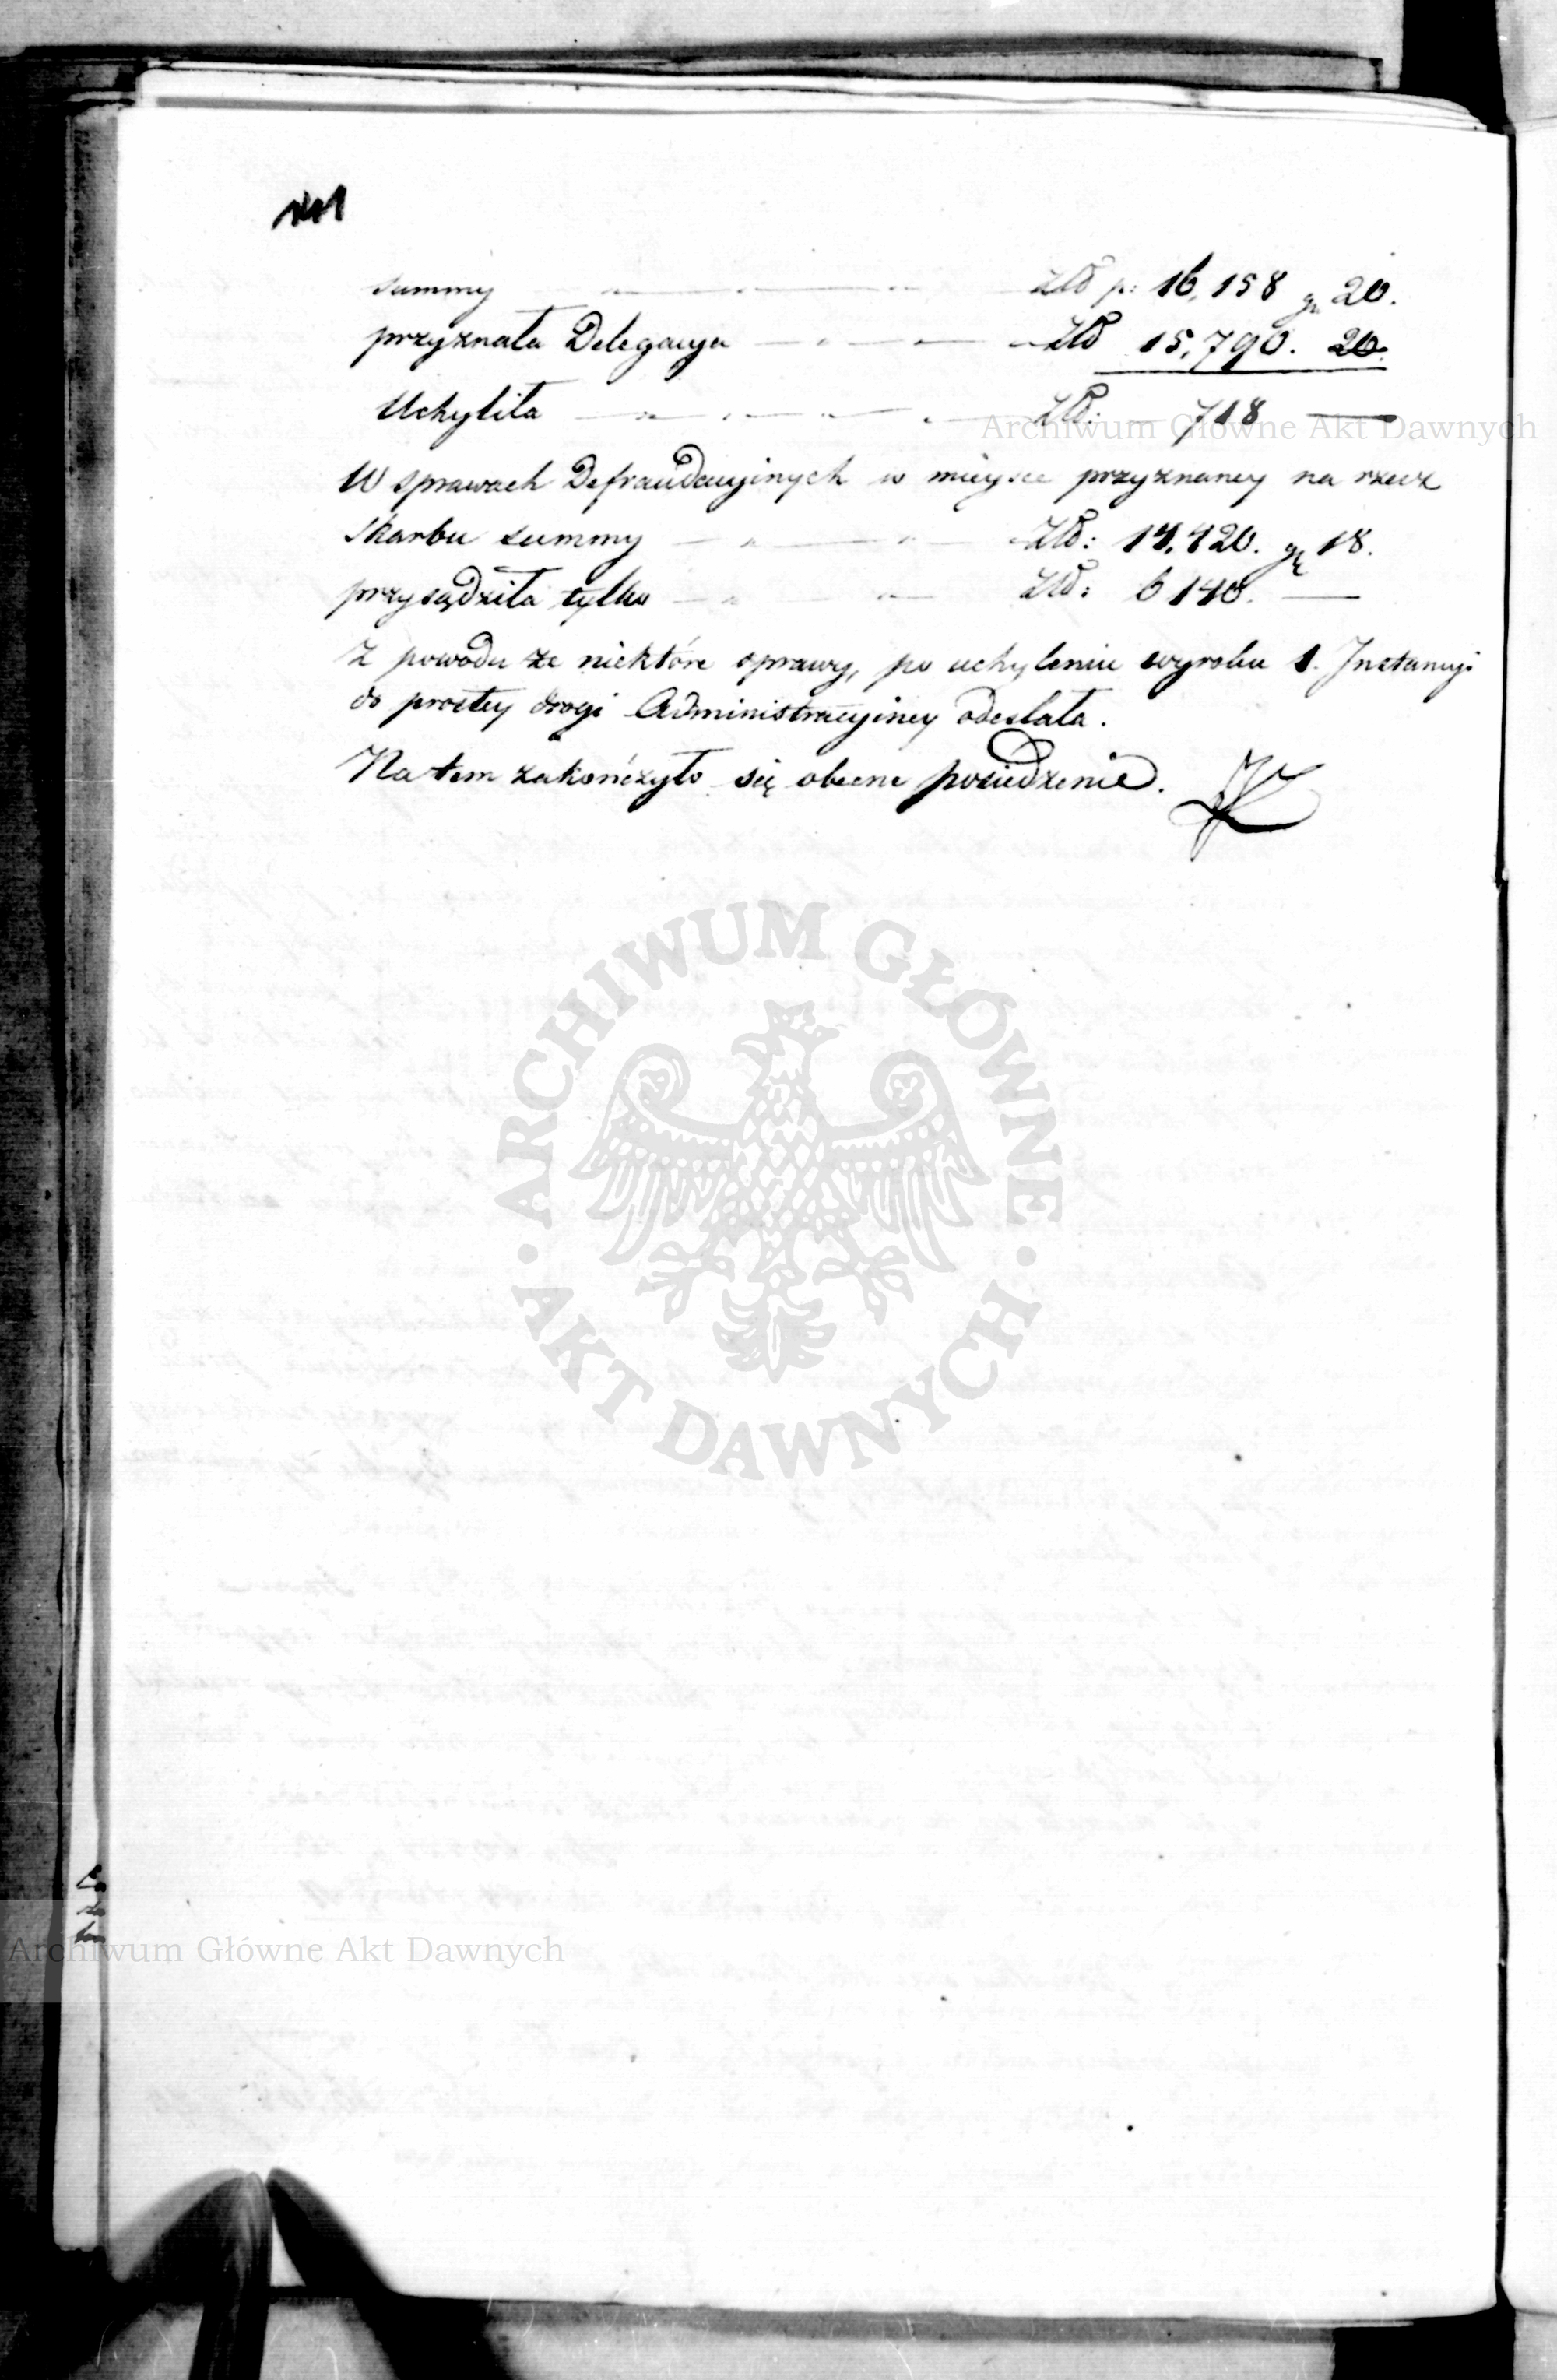 summy — Złd p: 16,158 gr 20.
przyznała Delegacya — Złd 15,790. 20.
Uchyliła — Złd: 718 —
W sprawach Defraudacyjnych w mieysce przyznaney na rzecz
skarbu summy — Złd: 14,420. gr 18.
przysądziła tylko — Złd: 6140. —
Z powodu że niektóre sprawy, po uchyleniu wyroku 1. Instancyi
do prostey drogi Administracyiney odesłała.
Na tem zakończyło się obecne posiedzenie.
Archiwum Główne Akt Dawnych
ARCHIWUM GŁÓWNE
AKT DAWNYCH
Archiwum Główne Akt Dawnych